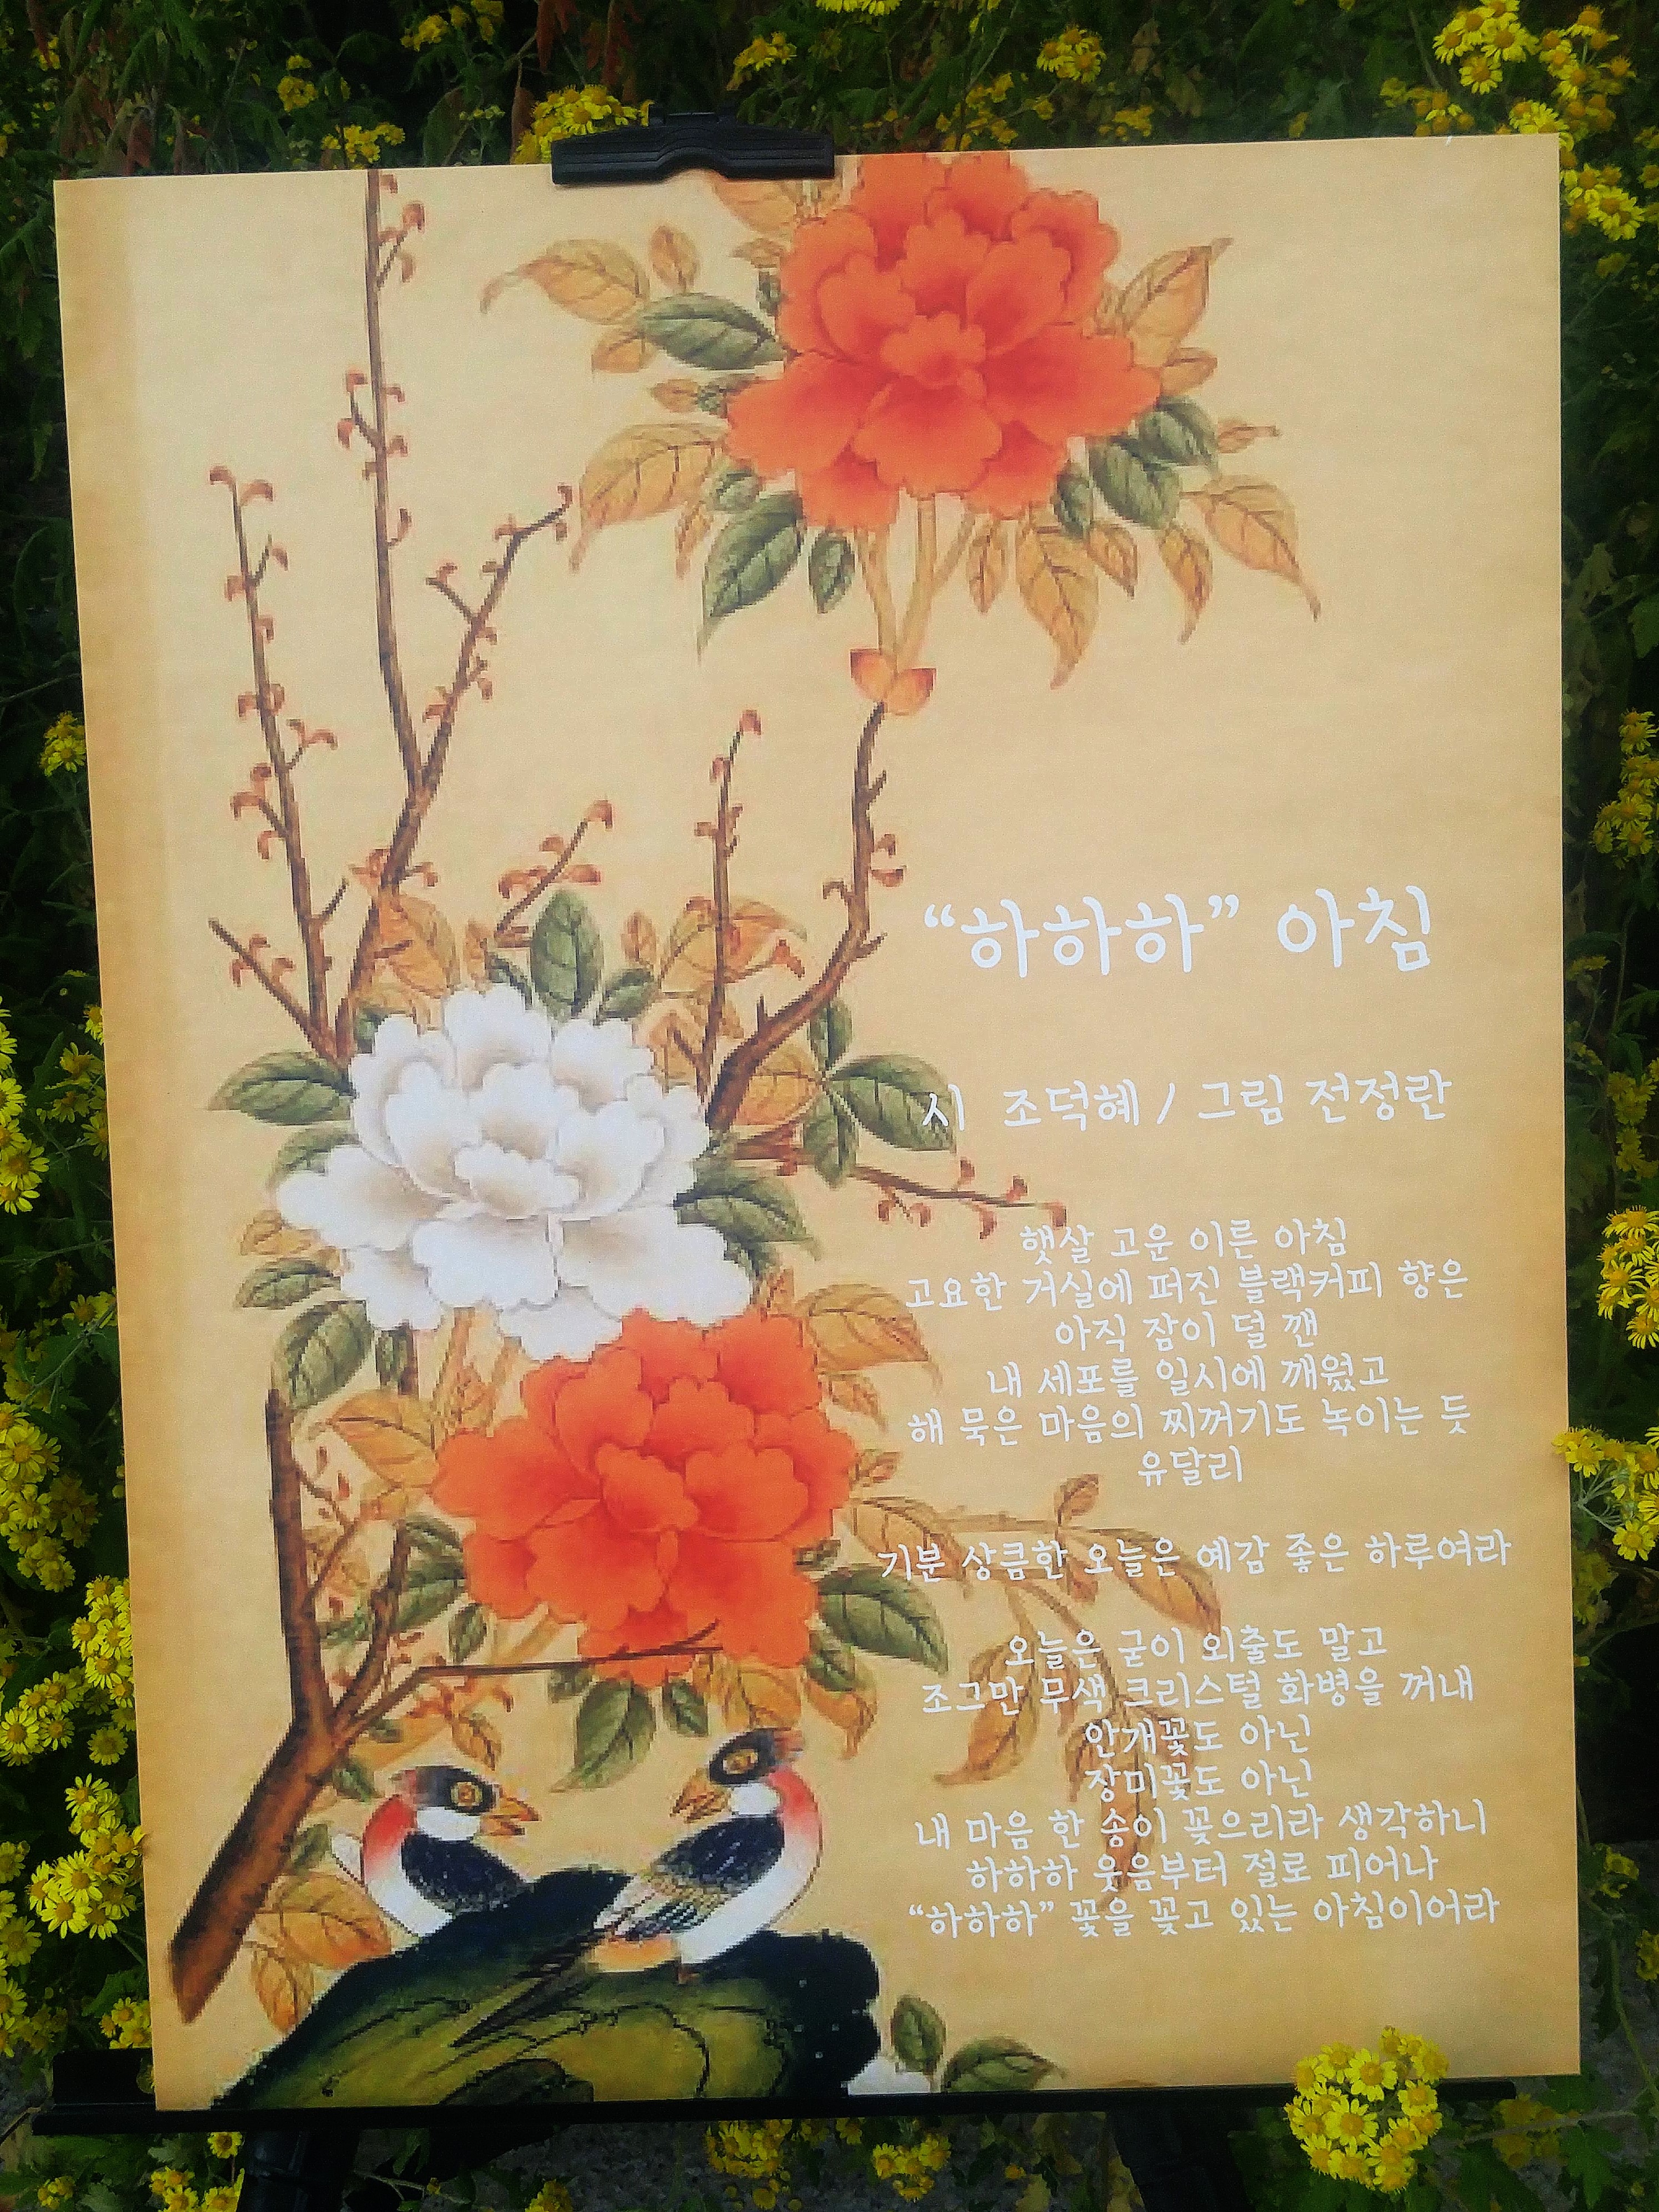 “하하하” 아침
시 조덕혜 / 그림 전정란
햇살 고운 이른 아침
고요한 거실에 퍼진 블랙커피 향은
아직 잠이 덜 깬
내 세포를 일시에 깨웠고
해 묵은 마음의 찌꺼기도 녹이는 듯
유달리
기분 상큼한 오늘은 예감 좋은 하루여라
오늘은 굳이 외출도 말고
조그만 무색 크리스털 화병을 꺼내
안개꽃도 아닌
장미꽃도 아닌
내 마음 한 송이 꽂으리라 생각하니
하하하 웃음부터 절로 피어나
“하하하” 꽃을 꽂고 있는 아침이어라